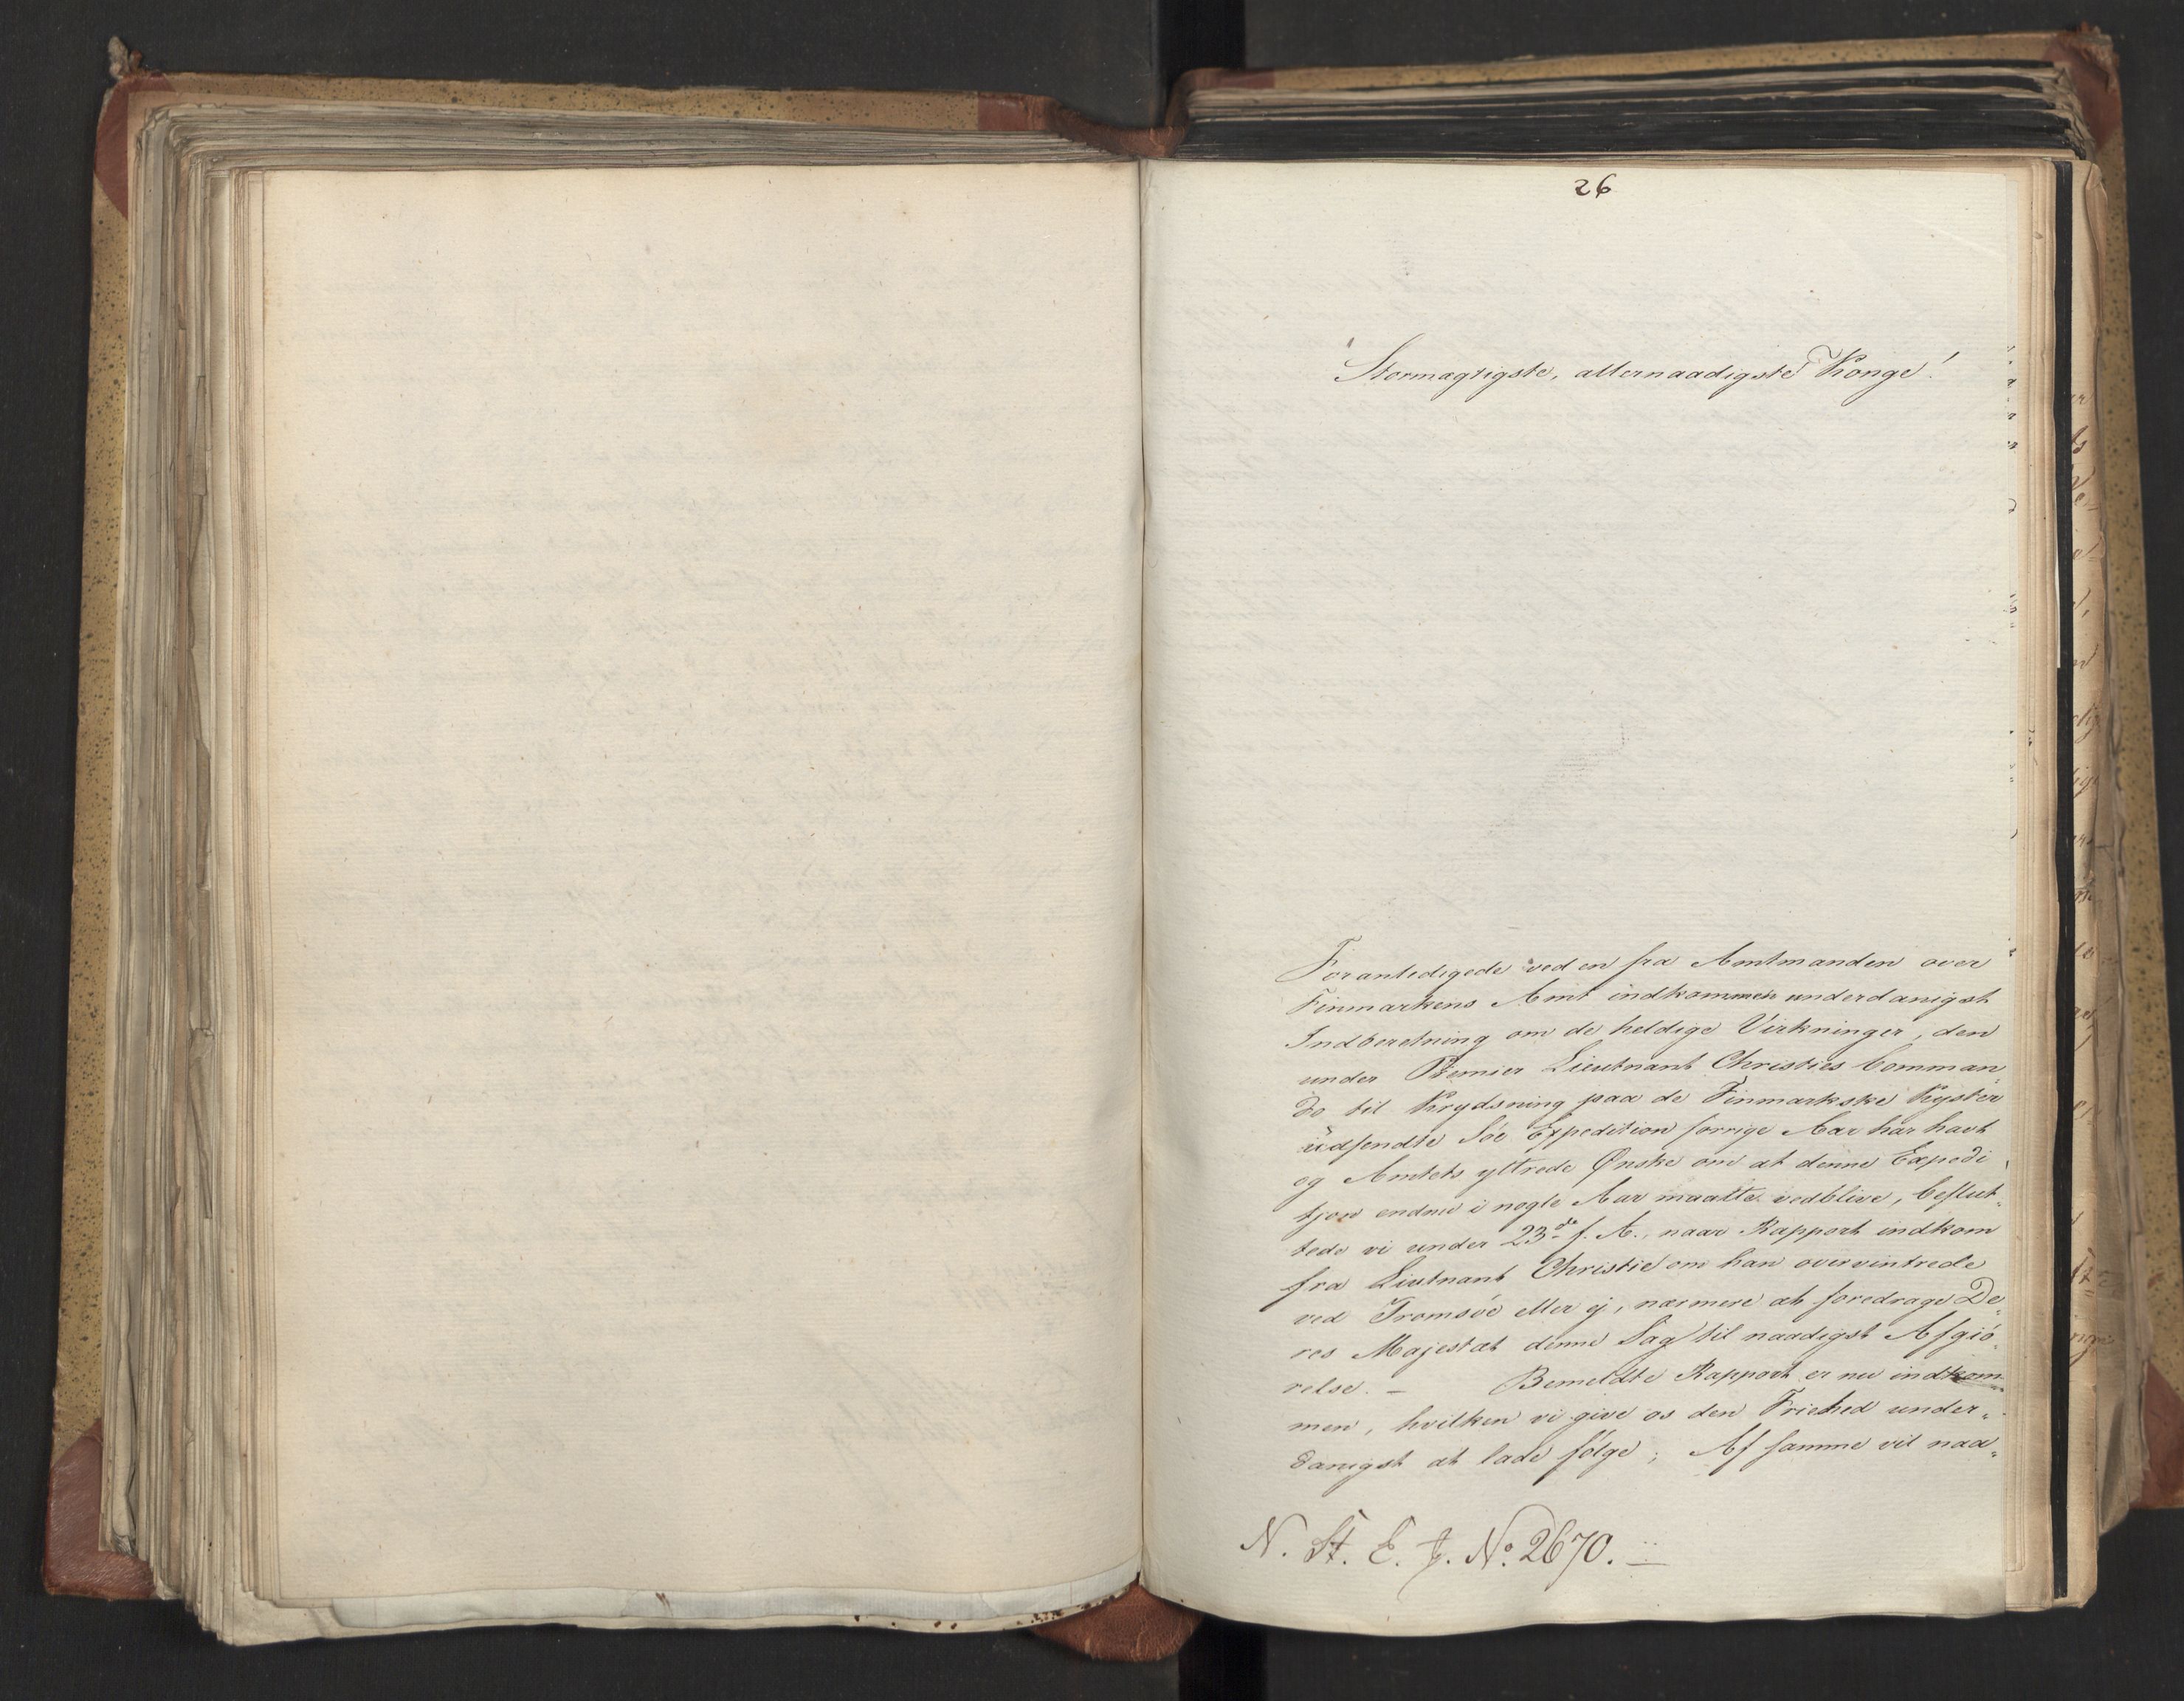 26
Stormagtigste, allernaadigste Konge!
Foranledigede ved en fra Amtmanden over
Finmarkens Amt indkommen underdanigst
Indberetning om de heldige Virkninger, den
under Premier Lieutnant Christies Comman„
do til Krydsning paa de Finmarkske Kyster
udsendte Söe Expedition forrige Aar har havt
og Amtets yttrede Ønske om at denne Expedi„
tjon endnu i nogle Aar maatte vedblive, beslut„
tede vi under 23de f. A., naar Rapport indkom
fra Liutnant Christie om han overvintrede
ved Tromsöe eller ej, nærmere at foredrage De„
res Majestæt denne Sag til naadigst Afgiö„
relse. – Bemeldte Rapport er nu indkom„
men, hvilken vi give os den Friehed under„
danigst at lade fölge; Af samme vil naa„
N. St. E. J. No. 2670.